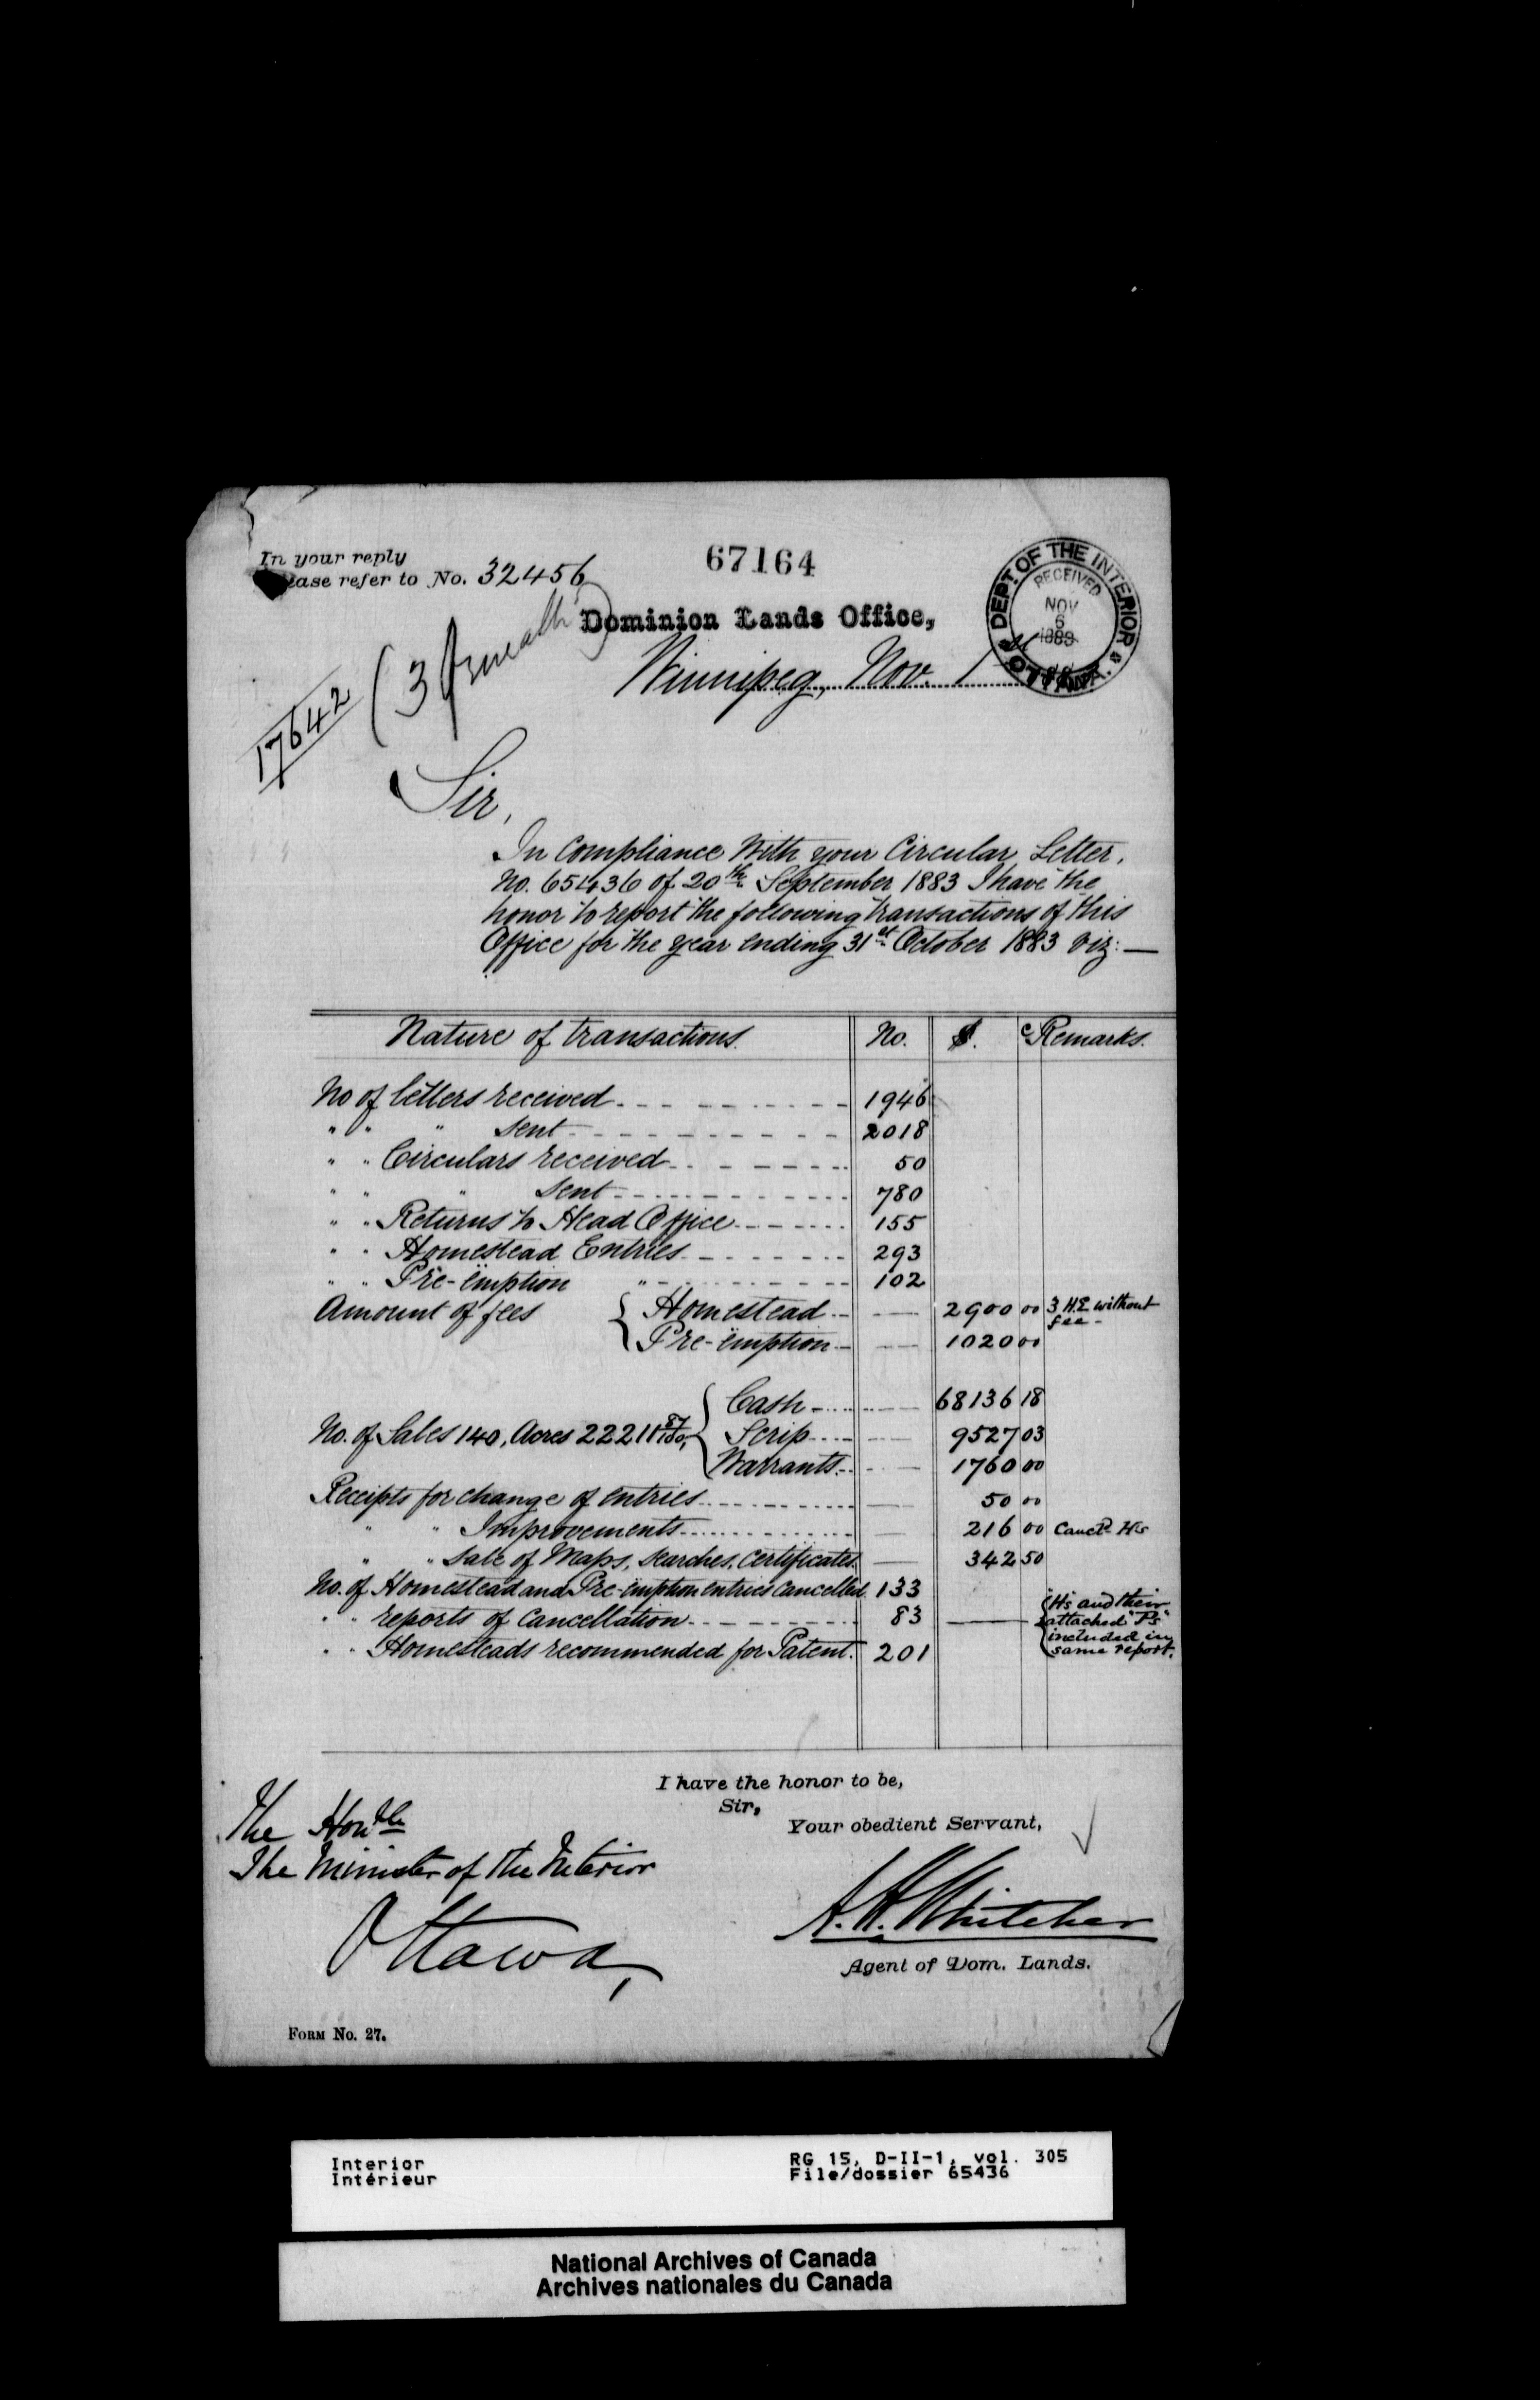 In your reply
ease refer to No. 32456
67164
DEPT. OF THE INTERIOR
RECEIVED
NOV
6
1883
OTTAWA.
Dominion Lands Office,
Winnipeg, Nov. 1
17642
(3
Sir,
In Compliance With your Circular Letter,
No. 65436 of 20th September 1883 I have the
honor to report the following transactions of this
Office for the year ending 31st October 1883 viz:—
Nature of transactions. No. $. c Remarks.
No of letters received 1946
" " " sent 2018
" " Circulars received 50
" " " sent 780
" " Returns to Head Office 155
" " Homestead Entries 293
" " Pre-emption " 102
Amount of fees { Homestead — 2900 00 3 H.E without fee -
Pre-emption — 1020 00
Cash — 68136 18
No. of Sales 140, Acres 22211 87/100, { Scrip — 9527 03
Warrants — 1760 00
Receipts for change of entries — 50 00
" " Improvements — 216 00 Cancd Hs
" " Sale of Maps, searches, certificates. — 342 50
No. of Homestead and Pre-emption entries cancelled 133
" " reports of cancellation 83 — { "Hs and their attached "Ps" included in same report.
" " Homesteads recommended for Patent. 201
I have the honor to be,
Sir,
Your obedient Servant,
The Honble
The Minister of the Interior
Ottawa,
A. H. Whitcher
Agent of Dom. Lands.
FORM No. 27.
Interior
Intérieur
RG 15, D-II-1, vol. 305
File/dossier 65436
National Archives of Canada
Archives nationales du Canada